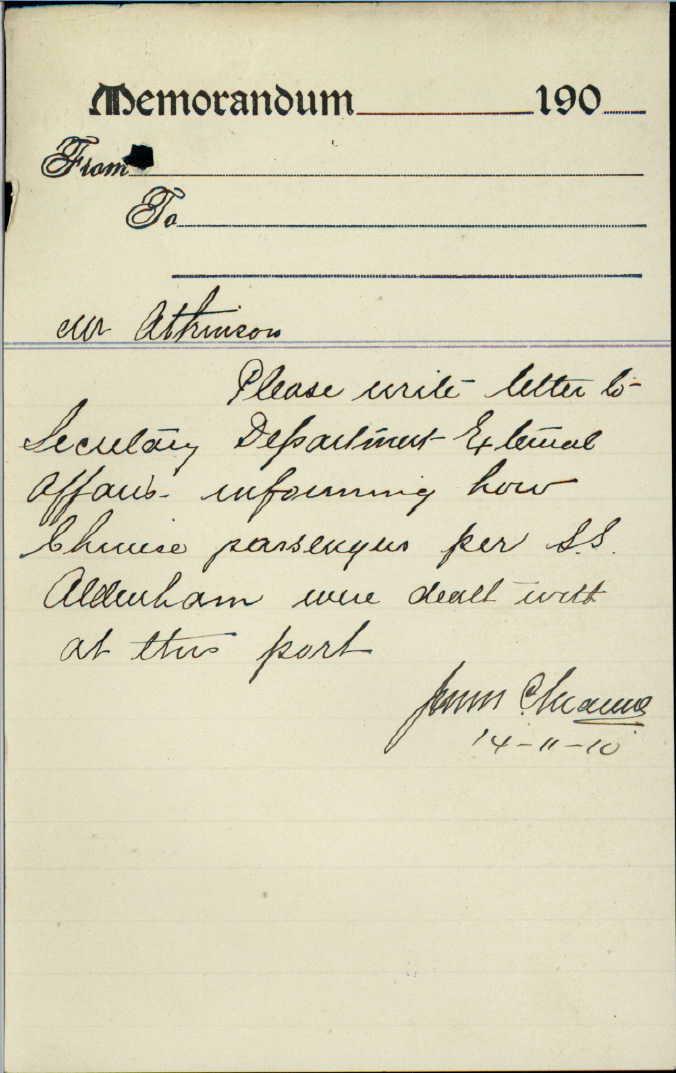 Memorandum 190
From
To
Mr Atkinson
Please write letter to
Secretary Department External
Affairs informing how
Chinese passengers per S.S.
Aldenham were dealt with
at this port
14-11-10